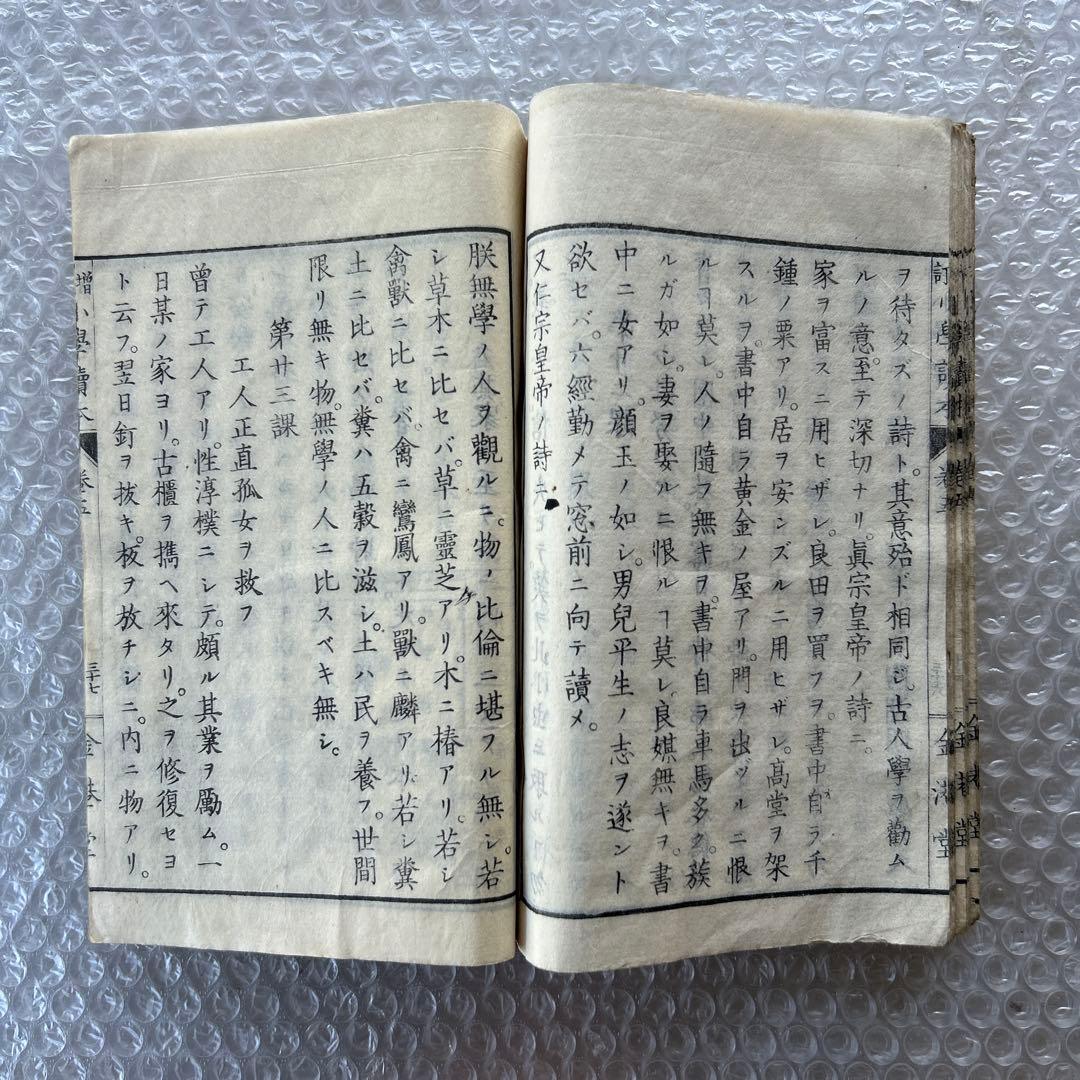 ヲ待タズノ詩ト。其意殆ド相同ジ。古人學ヲ勸ム
ルノ意。至テ深切ナリ。眞宗皇帝ノ詩ニ。
家ヲ富スニ用ヒザレ。良田ヲ買フヲ。書中自ラ千
鍾ノ粟アリ。居ヲ安ンズルニ用ヒザレ。高堂ヲ架
スルヲ。書中自ラ黄金ノ屋アリ。門ヲ出ヅルニ恨
ルヿ莫レ。人ノ隨フ無キヲ。書中自ラ車馬多ク。簇
ルガ如シ。妻ヲ娶ルニ恨ルヿ莫レ。良媒無キヲ。書
中ニ女アリ。顔玉ノ如シ。男兒平生ノ志ヲ遂ント
欲セバ。六經勤メテ窓前ニ向テ讀メ。
又仁宗皇帝ノ詩ニ
朕無學ノ人ヲ觀ルニ。物ノ比倫ニ堪フル無シ。若
シ草木ニ比セバ。草ニ靈芝アリ。木ニ椿アリ。若シ
禽獸ニ比セバ。禽ニ鸞鳳アリ。獸ニ麟アリ。若シ糞
土ニ比セバ。糞ハ五穀ヲ滋シ。土ハ民ヲ養フ。世間
限リ無キ物。無學ノ人ニ比スベキ無シ。
第廿三課
工人正直孤女ヲ救フ
曾テ工人アリ。性淳樸ニシテ。頗ル其業ヲ勵ム。一
日某ノ家ヨリ。古櫃ヲ携ヘ來タリ。之ヲ修復セヨ
ト云フ。翌日釘ヲ拔キ。板ヲ放チシニ。内ニ物アリ。
増小學讀本 卷五 三十七 金港堂